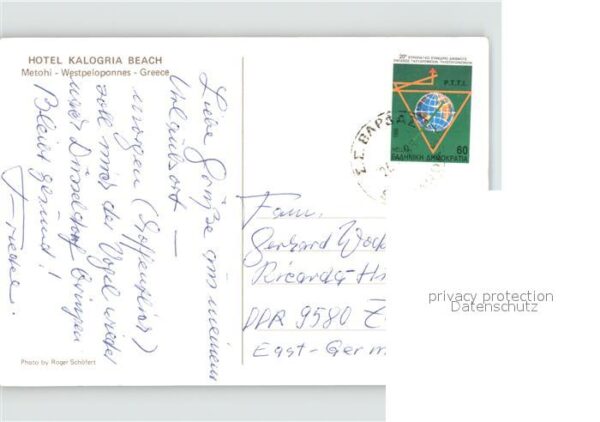 HOTEL KALOGRIA BEACH
Metohi - Westpeloponnes - Greece
Liebe Grüße aus meinem
Urlaubsort —
morgen (hoffentlich)
soll mich der Vogel wieder
nach Düsseldorf bringen
Bleibt gesund!
Frieder.
Photo by Roger Schöfert
P.T.T.I.
60
ΕΛΛΗΝΙΚΗ ΔΗΜΟΚΡΑΤΙΑ
Σ.Σ. ΒΑΡΔΑ
Fam.
Gerhard
Ricarda-H
DDR 9580 Z
East-Germ
privacy protection
Datenschutz